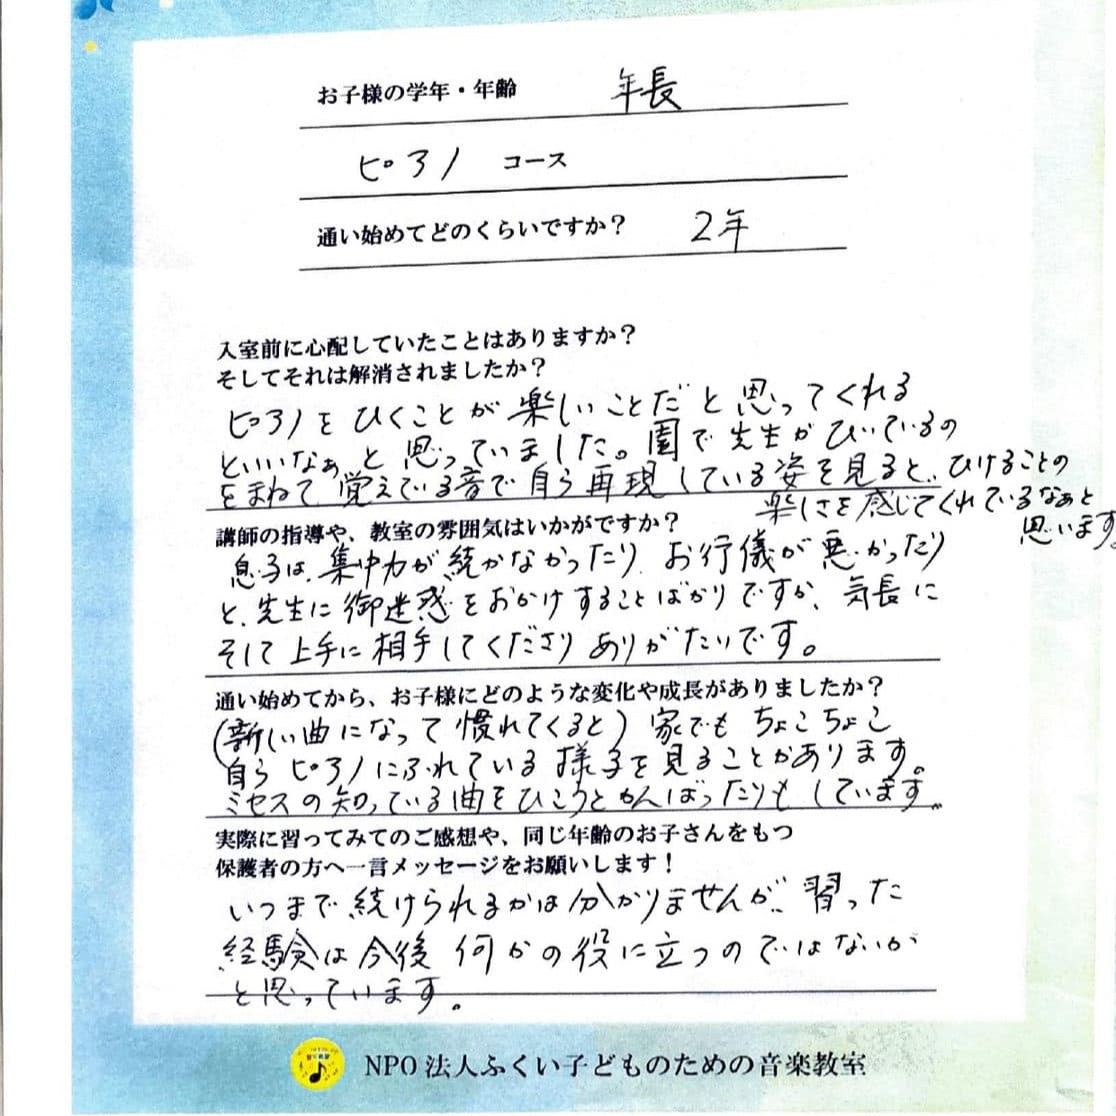 お子様の学年・年齢 年長
ピアノ コース
通い始めてどのくらいですか? 2年
入室前に心配していたことはありますか?
そしてそれは解消されましたか?
ピアノをひくことが楽しいことだと思ってくれる
といいなぁと思っていました。園で先生がひいているの
をまねて、覚えている音で自ら再現している姿を見ると、ひけることの
楽しさを感じてくれているなぁと
思います。
講師の指導や、教室の雰囲気はいかがですか?
息子は、集中力が続かなかったり、お行儀が悪かったり
と、先生に御迷惑をおかけすることばかりですが、気長に
そして上手に相手してくださりありがたいです。
通い始めてから、お子様にどのような変化や成長がありましたか?
(新しい曲になって慣れてくると)家でもちょこちょこ
自らピアノにふれている様子を見ることがあります。
ミセスの知っている曲をひこうとがんばったりもしています。
実際に習ってみてのご感想や、同じ年齢のお子さんをもつ
保護者の方へ一言メッセージをお願いします!
いつまで続けられるかは分かりませんが、習った
経験は今後何かの役に立つのではないか
と思っています。
NPO法人ふくい子どものための音楽教室